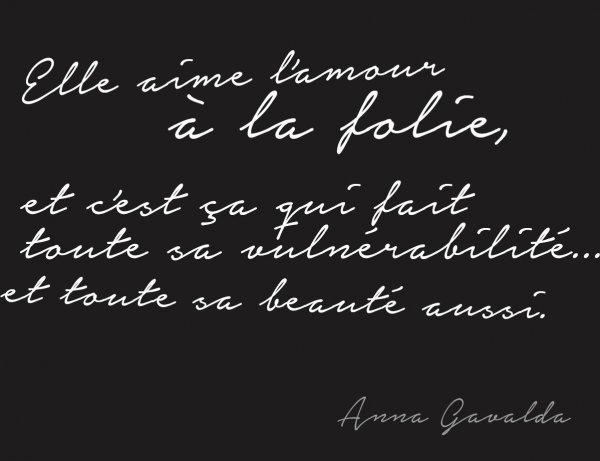 Elle aime l'amour
à la folie,
et c'est ça qui fait
toute sa vulnérabilité...
et toute sa beauté aussi.
Anna Gavalda